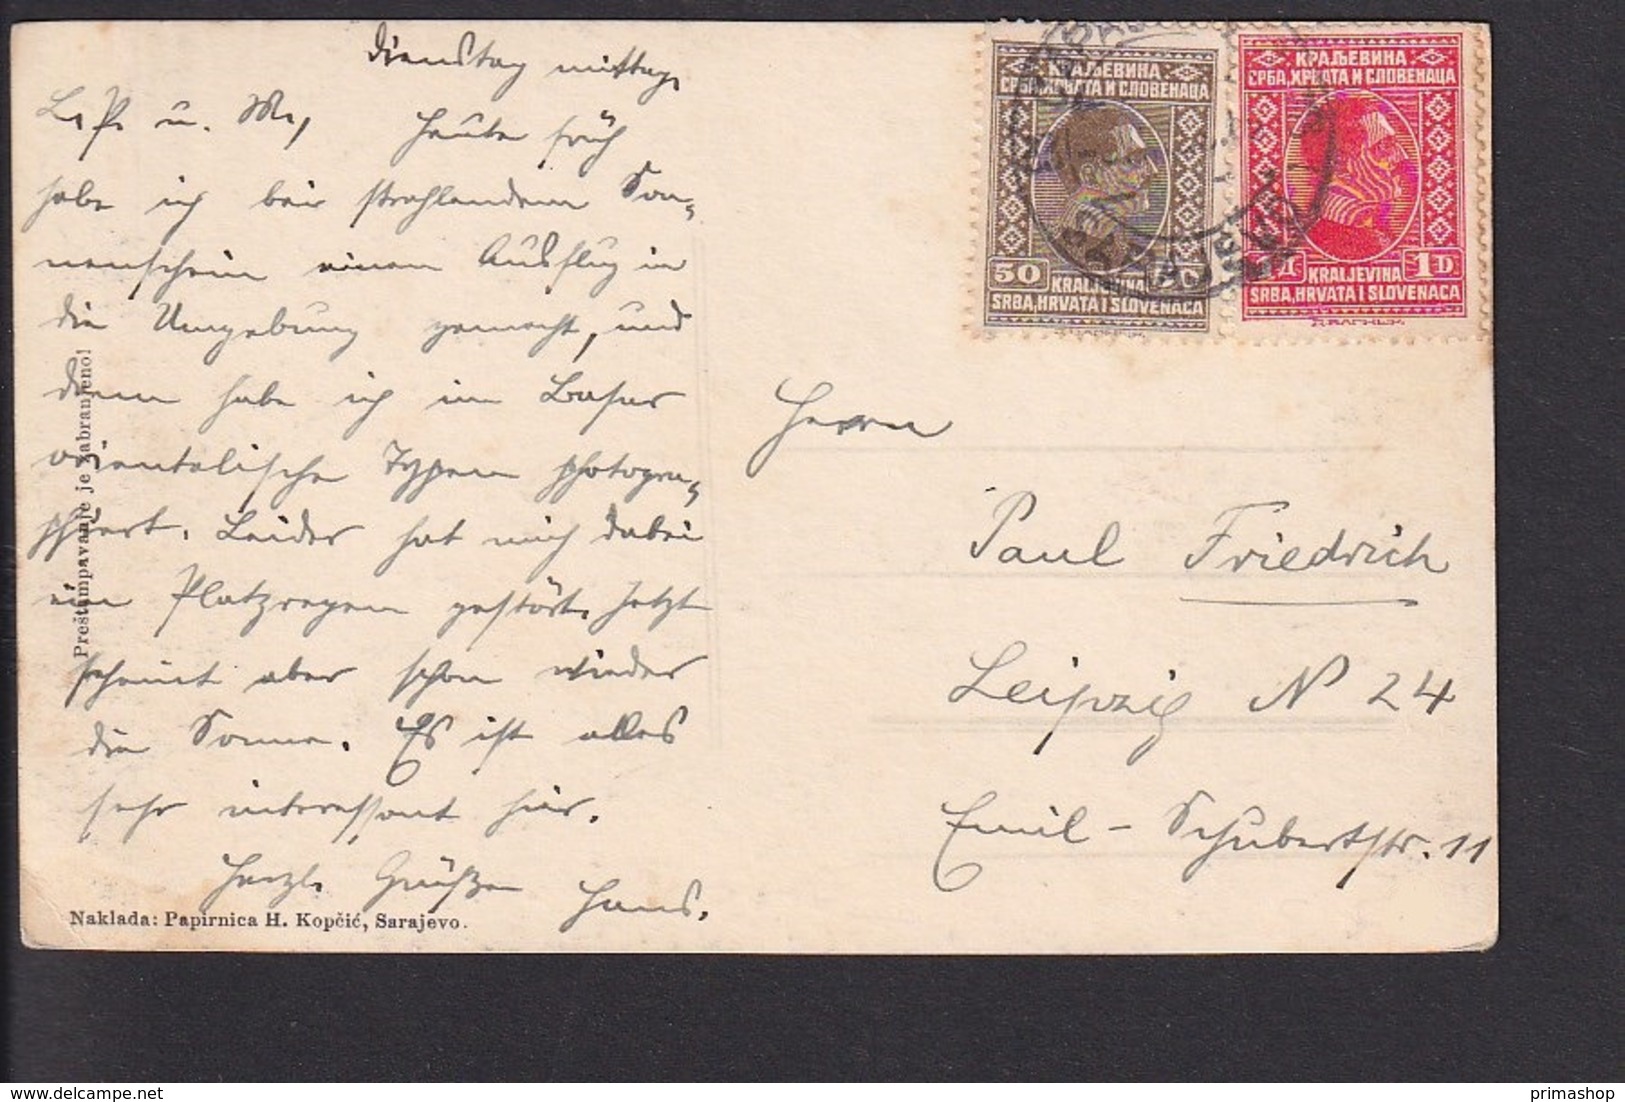 Dienstag mittag.
L. P. u. M., Heute früh
habe ich bei strahlendem Son-
nenschein einen Ausflug in
die Umgebung gemacht, und
dann habe ich im Basar
orientalische Typen photogra-
phiert. Leider hat mich dabei
ein Platzregen gestört. Jetzt
scheint aber schon wieder
die Sonne. Es ist alles
sehr interessant hier.
Herzl. Grüßen Hans.
Preštampavanje je zabranjeno!
Naklada: Papirnica H. Kopčić, Sarajevo.
КРАЉЕВИНА
СРБА, ХРВАТА И СЛОВЕНАЦА
50 50
KRALJEVINA
SRBA, HRVATA I SLOVENACA
КРАЉЕВИНА
СРБА, ХРВАТА И СЛОВЕНАЦА
1D.
KRALJEVINA
SRBA, HRVATA I SLOVENACA
Herrn
Paul Friedrich
Leipzig N 24
Emil-Schubertstr. 11
primashop